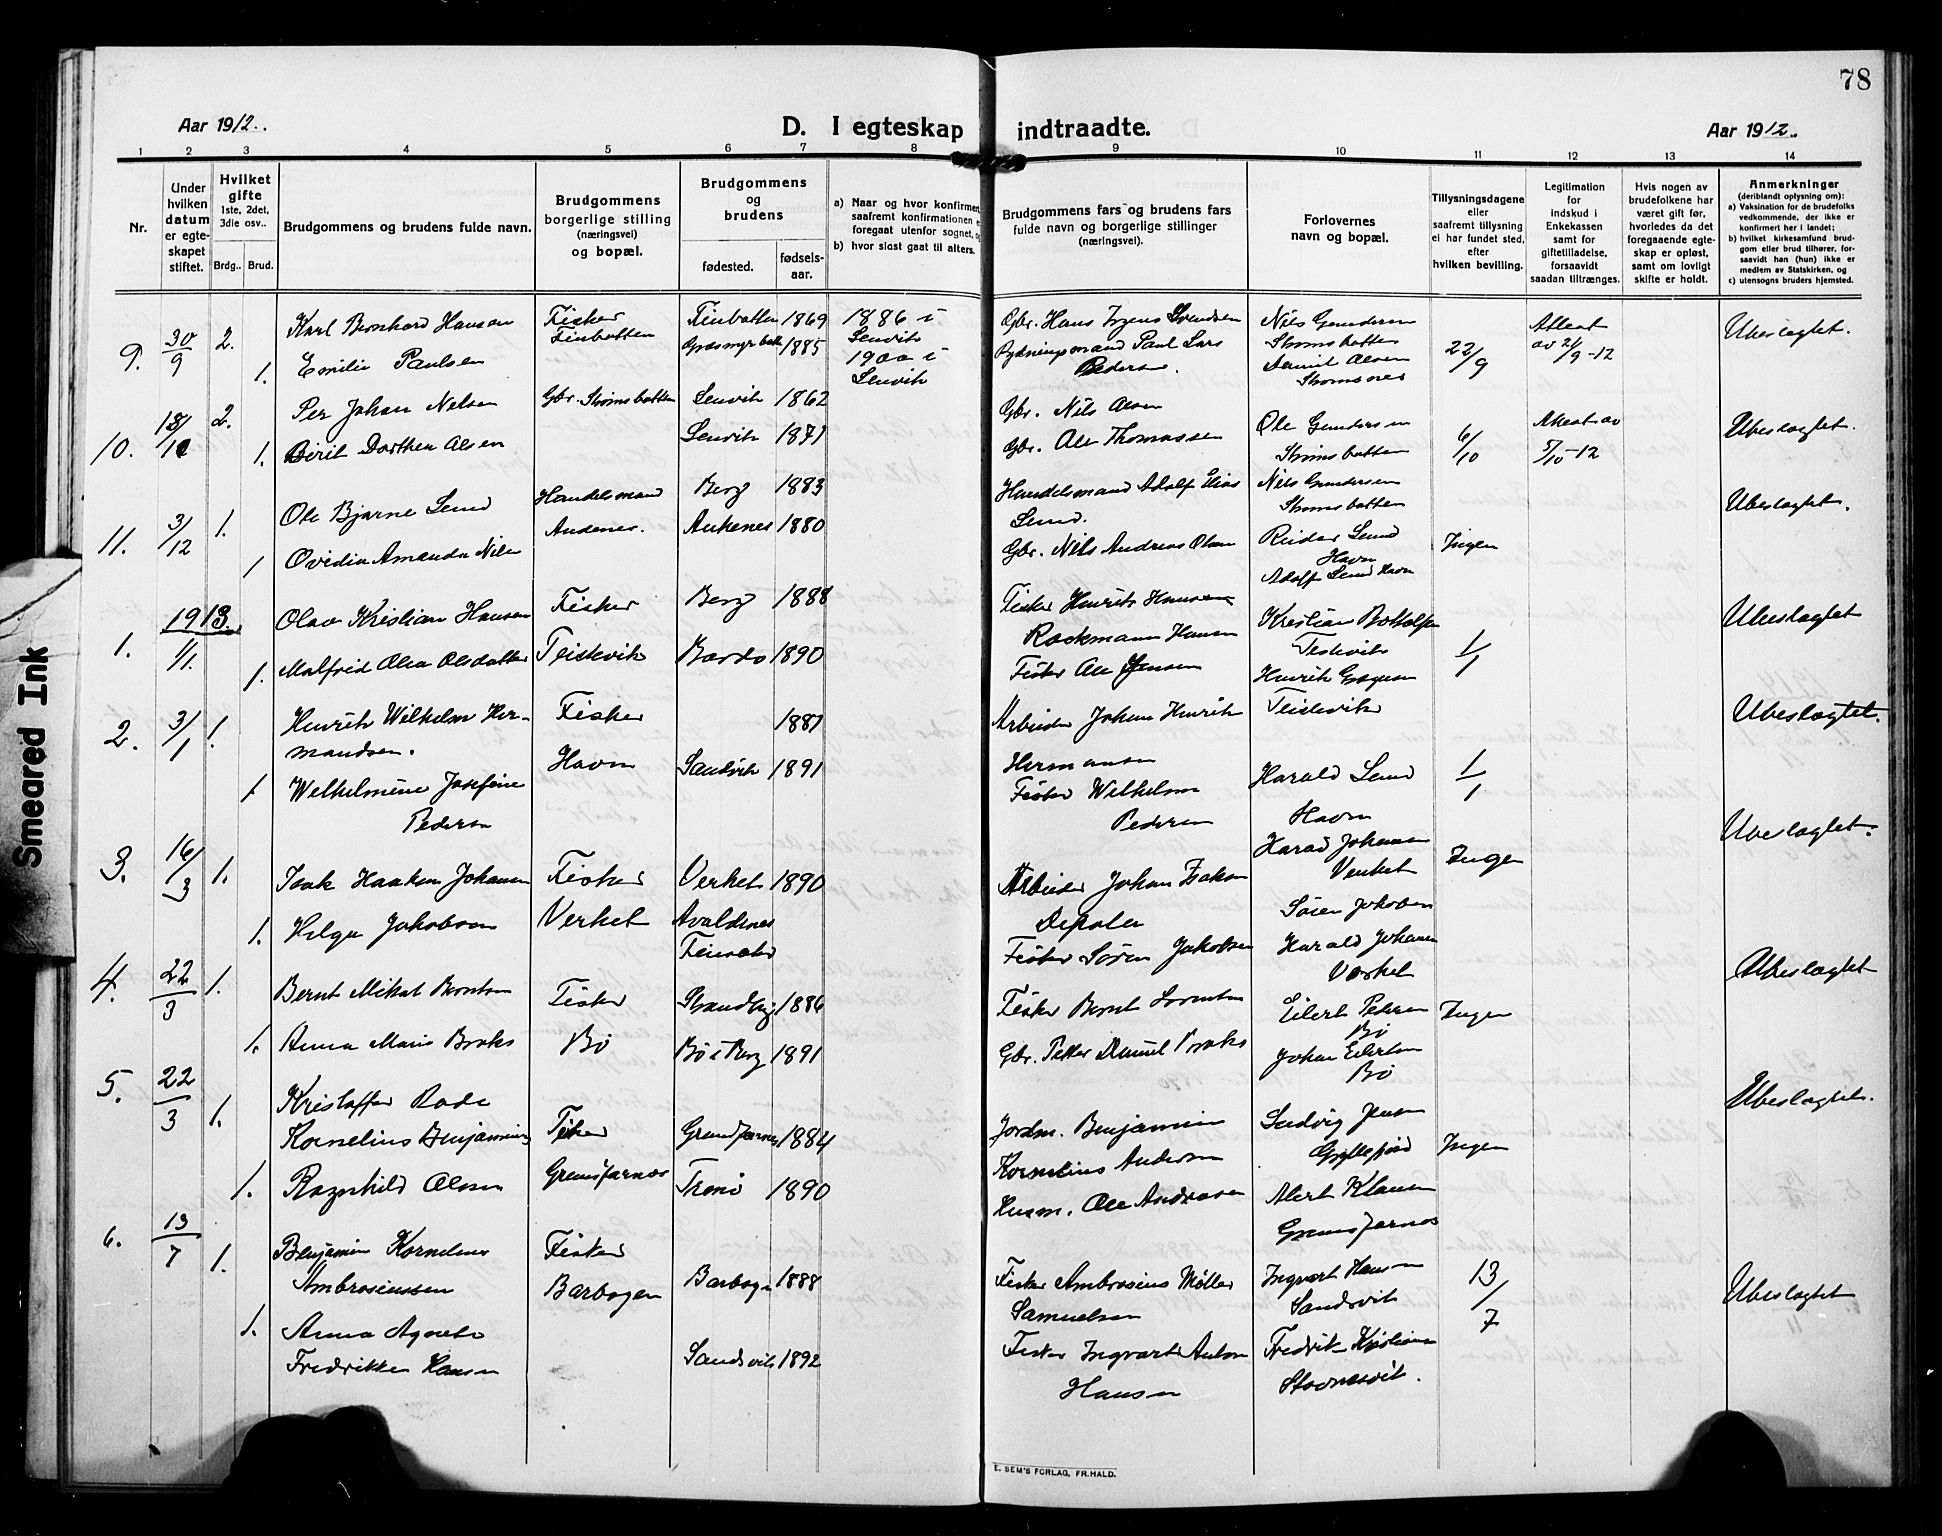 78
Aar 1912.
D. I egteskap indtraadte.
Aar 1912.
1 2 3 4 5 6 7 8 9 10 11 12 13 14
Nr.
Under hvilken datum er egteskapet stiftet.
Hvilket gifte
1ste, 2det, 3die osv..
Brdg.. Brud.
Brudgommens og brudens fulde navn.
Brudgommens borgerlige stilling (næringsvei) og bopæl.
Brudgommens og brudens
fødested.
fødsels-aar.
a) Naar og hvor konfirmert, saafremt konfirmationen er foregaat utenfor sognet, og
b) hvor sidst gaat til alters.
Brudgommens fars og brudens fars fulde navn og borgerlige stillinger (næringsvei).
Forlovernes navn og bopæl.
Tillysningsdagene eller saafremt tillysning ei har fundet sted, efter hvilken bevilling.
Legitimation for indskud i Enkekassen samt for giftetilladelse, forsaavidt saadan tiltrænges.
Hvis nogen av brudefolkene har været gift før, hvorledes da det foregaaende egteskap er opløst, samt om lovligt skifte er holdt.
Anmerkninger
(deriblandt oplysning om):
a) Vaksination for de brudefolks vedkommende, der ikke er konfirmert her i landet;
b) hvilket kirkesamfund brudgom eller brud tilhører, forsaavidt han (hun) ikke er medlem av Statskirken, og
c) utensogns bruders hjemsted.
9. 30/9 2. Karl Bernhard Hansen Fisker Finbotten Finbotten 1869 1886 i Lenvik
1. Emilie Paulsen 1885 1900 i Lenvik
Gbr. Hans Svendsen
Rydningsmand Paul Lars Pedersen.
Nils Gundersen Strømsbotten
Daniel Olsen Strømsnes
22/9 Attest av 21/9-12 Ubeslægtet.
10. 2. Per Johan Nilsen Gbr. Strømsbotten Lenvik 1862
1. Berit Dorthea Olsen Lenvik 1871
Gbr. Nils Olsen
Gbr. Ole Thomassen
Ole Gundersen Strømsbotten
6/10 Attest av 5/10-12 Ubeslægtet.
11. 3/12 1. Ole Bjarne Lund Handelsmand Andenes. Berg 1883
1 Ovidia Amanda Nils Ankenes 1880
Handelsmand Adolf Elias Lund.
Gbr. Nils Andreas Olsen
Nils Gundersen Strømsbotten
Reidar Lund Havn
Adolf Lund Havn
Ingen Ubeslægtet.
1913.
1. 1/1. Olav Kristian Hansen Fisker Teistevik Berg 1888
1. Malfrid Olea Olsdatter Bardo 1890
Fisker Henrik Hansen
Rackmann Hansen
Fisker Ole Jensen
Kristian Bottolfsen Teistevik
Henrik Teistevik
1/1 Ubeslægtet
2. 3/1 1. Henrik Wilhelm Hermandsen. Fisker Havn 1887
1 Wilhelmine Josefine Pedersen Sandvik 1891
Arbeider Johan Henrik Hermansen
Fisker Wilhelm Pedersen
Harald Lund Havn
1/1 Ubeslægtet.
3. 16/3 1. Isak Haakon Johansen Fisker Verket Verket 1890
1. Helga Jakobsen Avaldsnes
Arbeider Johan Isaksen
Fisker Søren Jakobsen
Harald Johansen Verket
Søren Jakobsen
Harald Johansen Verket
Ingen Ubeslægtet.
4. 22/3 1. Bernt Mikal Berntsen Fisker Bø Strandby 1886
1. Anna Marie Broks Bø i Berg 1891
Fisker Bernt Lorentsen
Gbr. Petter Daniel Broks
Eilert Pedersen Bø
Johan Eilertsen Bø
Ingen Ubeslægtet
5. 22/3 1. Kristoffer Rode Kornelius Benjaminsen Fisker Grunfarnes Grunfarnes 1884
1. Ragnhild Olsen Tranø 1890
Jordm. Benjamin Kornelius Andersen
Husm. Ole Andreasen
Ludvig Jensen Gryllefjord
Alert Klausen Grunfarnes
Ingen Ubeslægtet.
6. 13/7 1. Benjamin Kornelius Ambrosiussen Fisker Barbogen Barbogen 1888
1. Anna Agnete Fredrikke Hansen Sandsvik 1892
Fisker Ambrosius Møller Samuelsen
Fisker Ingvart Anton Hansen
Ingvart Hansen Sandsvik
Fredrik Kristiansen Stavnesvik.
13/7 Ubeslægtet
E. SEM'S FORLAG, FR.HALD.
Smeared Ink